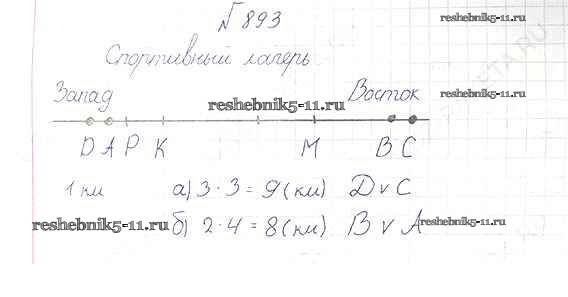 №893
reshebnik5-11.ru
Спортивный лагерь
Запад reshebnik5-11.ru Восток reshebnik5-11.ru
D A P K M B C
1 км а) 3·3=9(км) D v C
reshebnik5-11.ru б) 2·4=8(км) B v A reshebnik5-11.ru